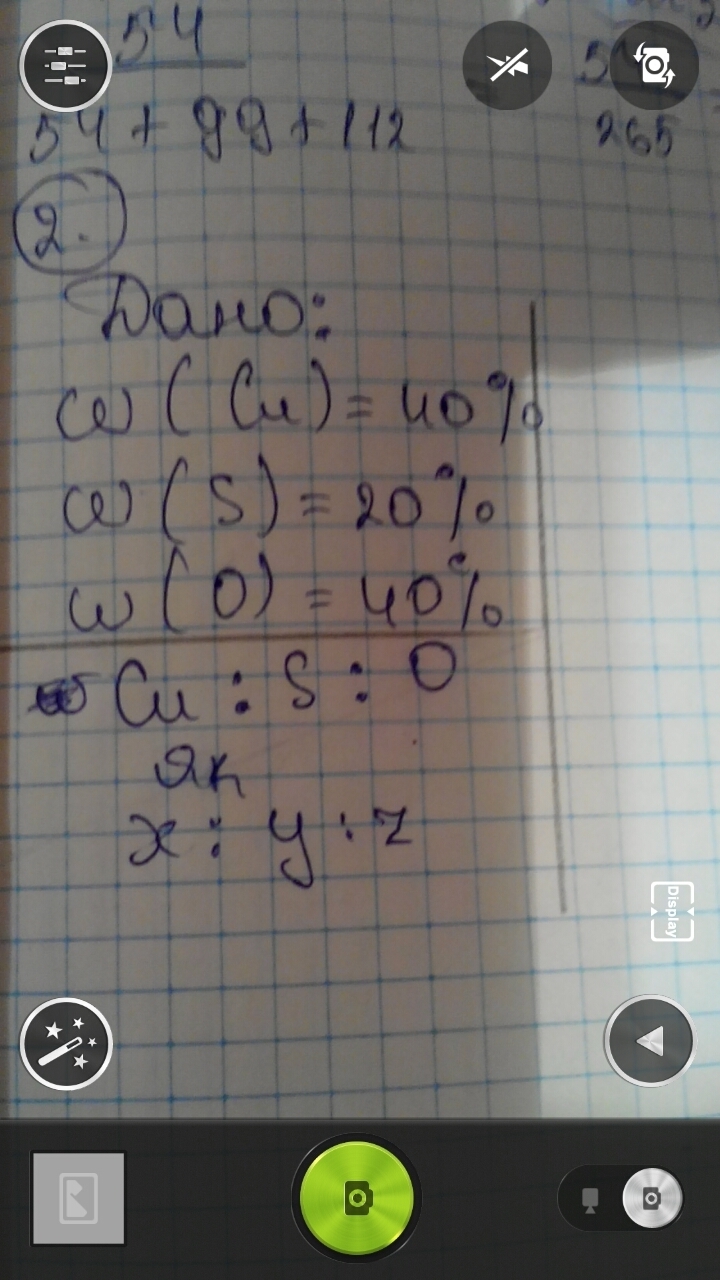 54
54 + 99 + 112
265
2.
Дано:
w (Cu) = 40%
w (S) = 20%
w (O) = 40%
Cu : S : O
як
x : y : z
Display